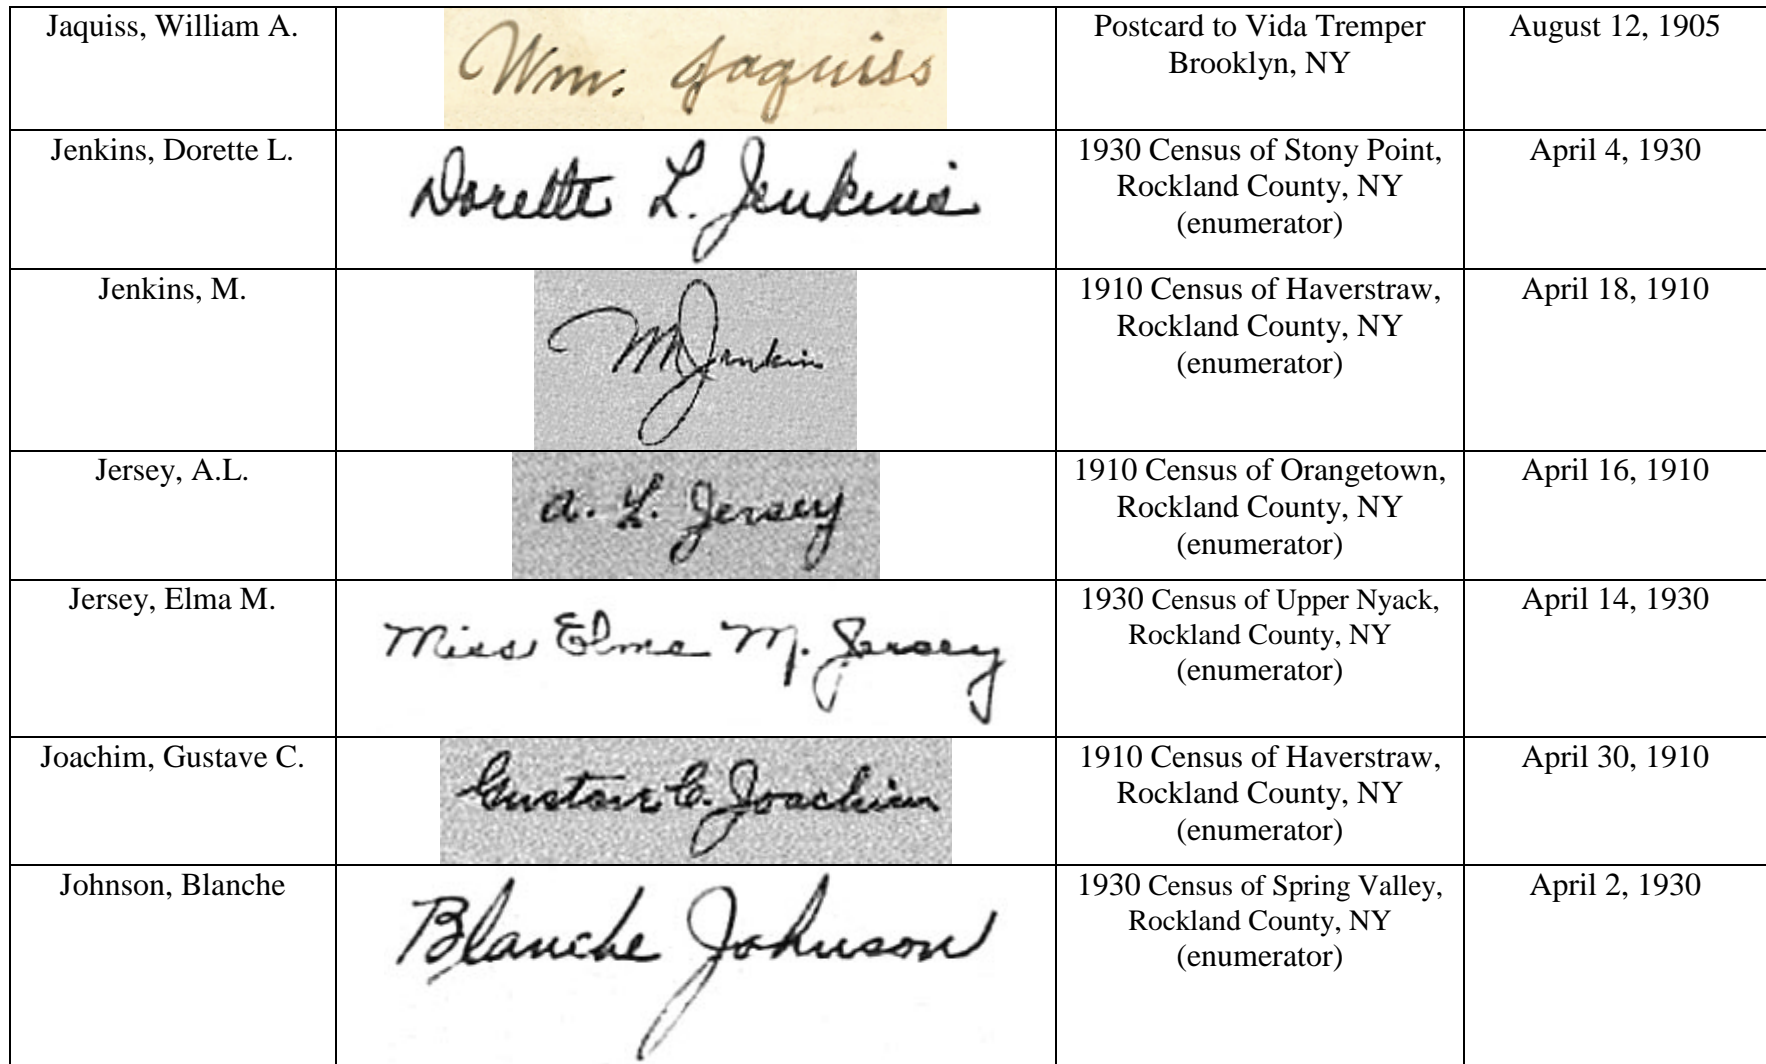 Jaquiss, William A.
Wm. Jaquiss
Postcard to Vida Tremper
Brooklyn, NY
August 12, 1905
Jenkins, Dorette L.
Dorette L. Jenkins
1930 Census of Stony Point,
Rockland County, NY
(enumerator)
April 4, 1930
Jenkins, M.
M Jenkins
1910 Census of Haverstraw,
Rockland County, NY
(enumerator)
April 18, 1910
Jersey, A.L.
A. L. Jersey
1910 Census of Orangetown,
Rockland County, NY
(enumerator)
April 16, 1910
Jersey, Elma M.
Miss Elma M. Jersey
1930 Census of Upper Nyack,
Rockland County, NY
(enumerator)
April 14, 1930
Joachim, Gustave C.
Gustave C. Joachim
1910 Census of Haverstraw,
Rockland County, NY
(enumerator)
April 30, 1910
Johnson, Blanche
Blanche Johnson
1930 Census of Spring Valley,
Rockland County, NY
(enumerator)
April 2, 1930